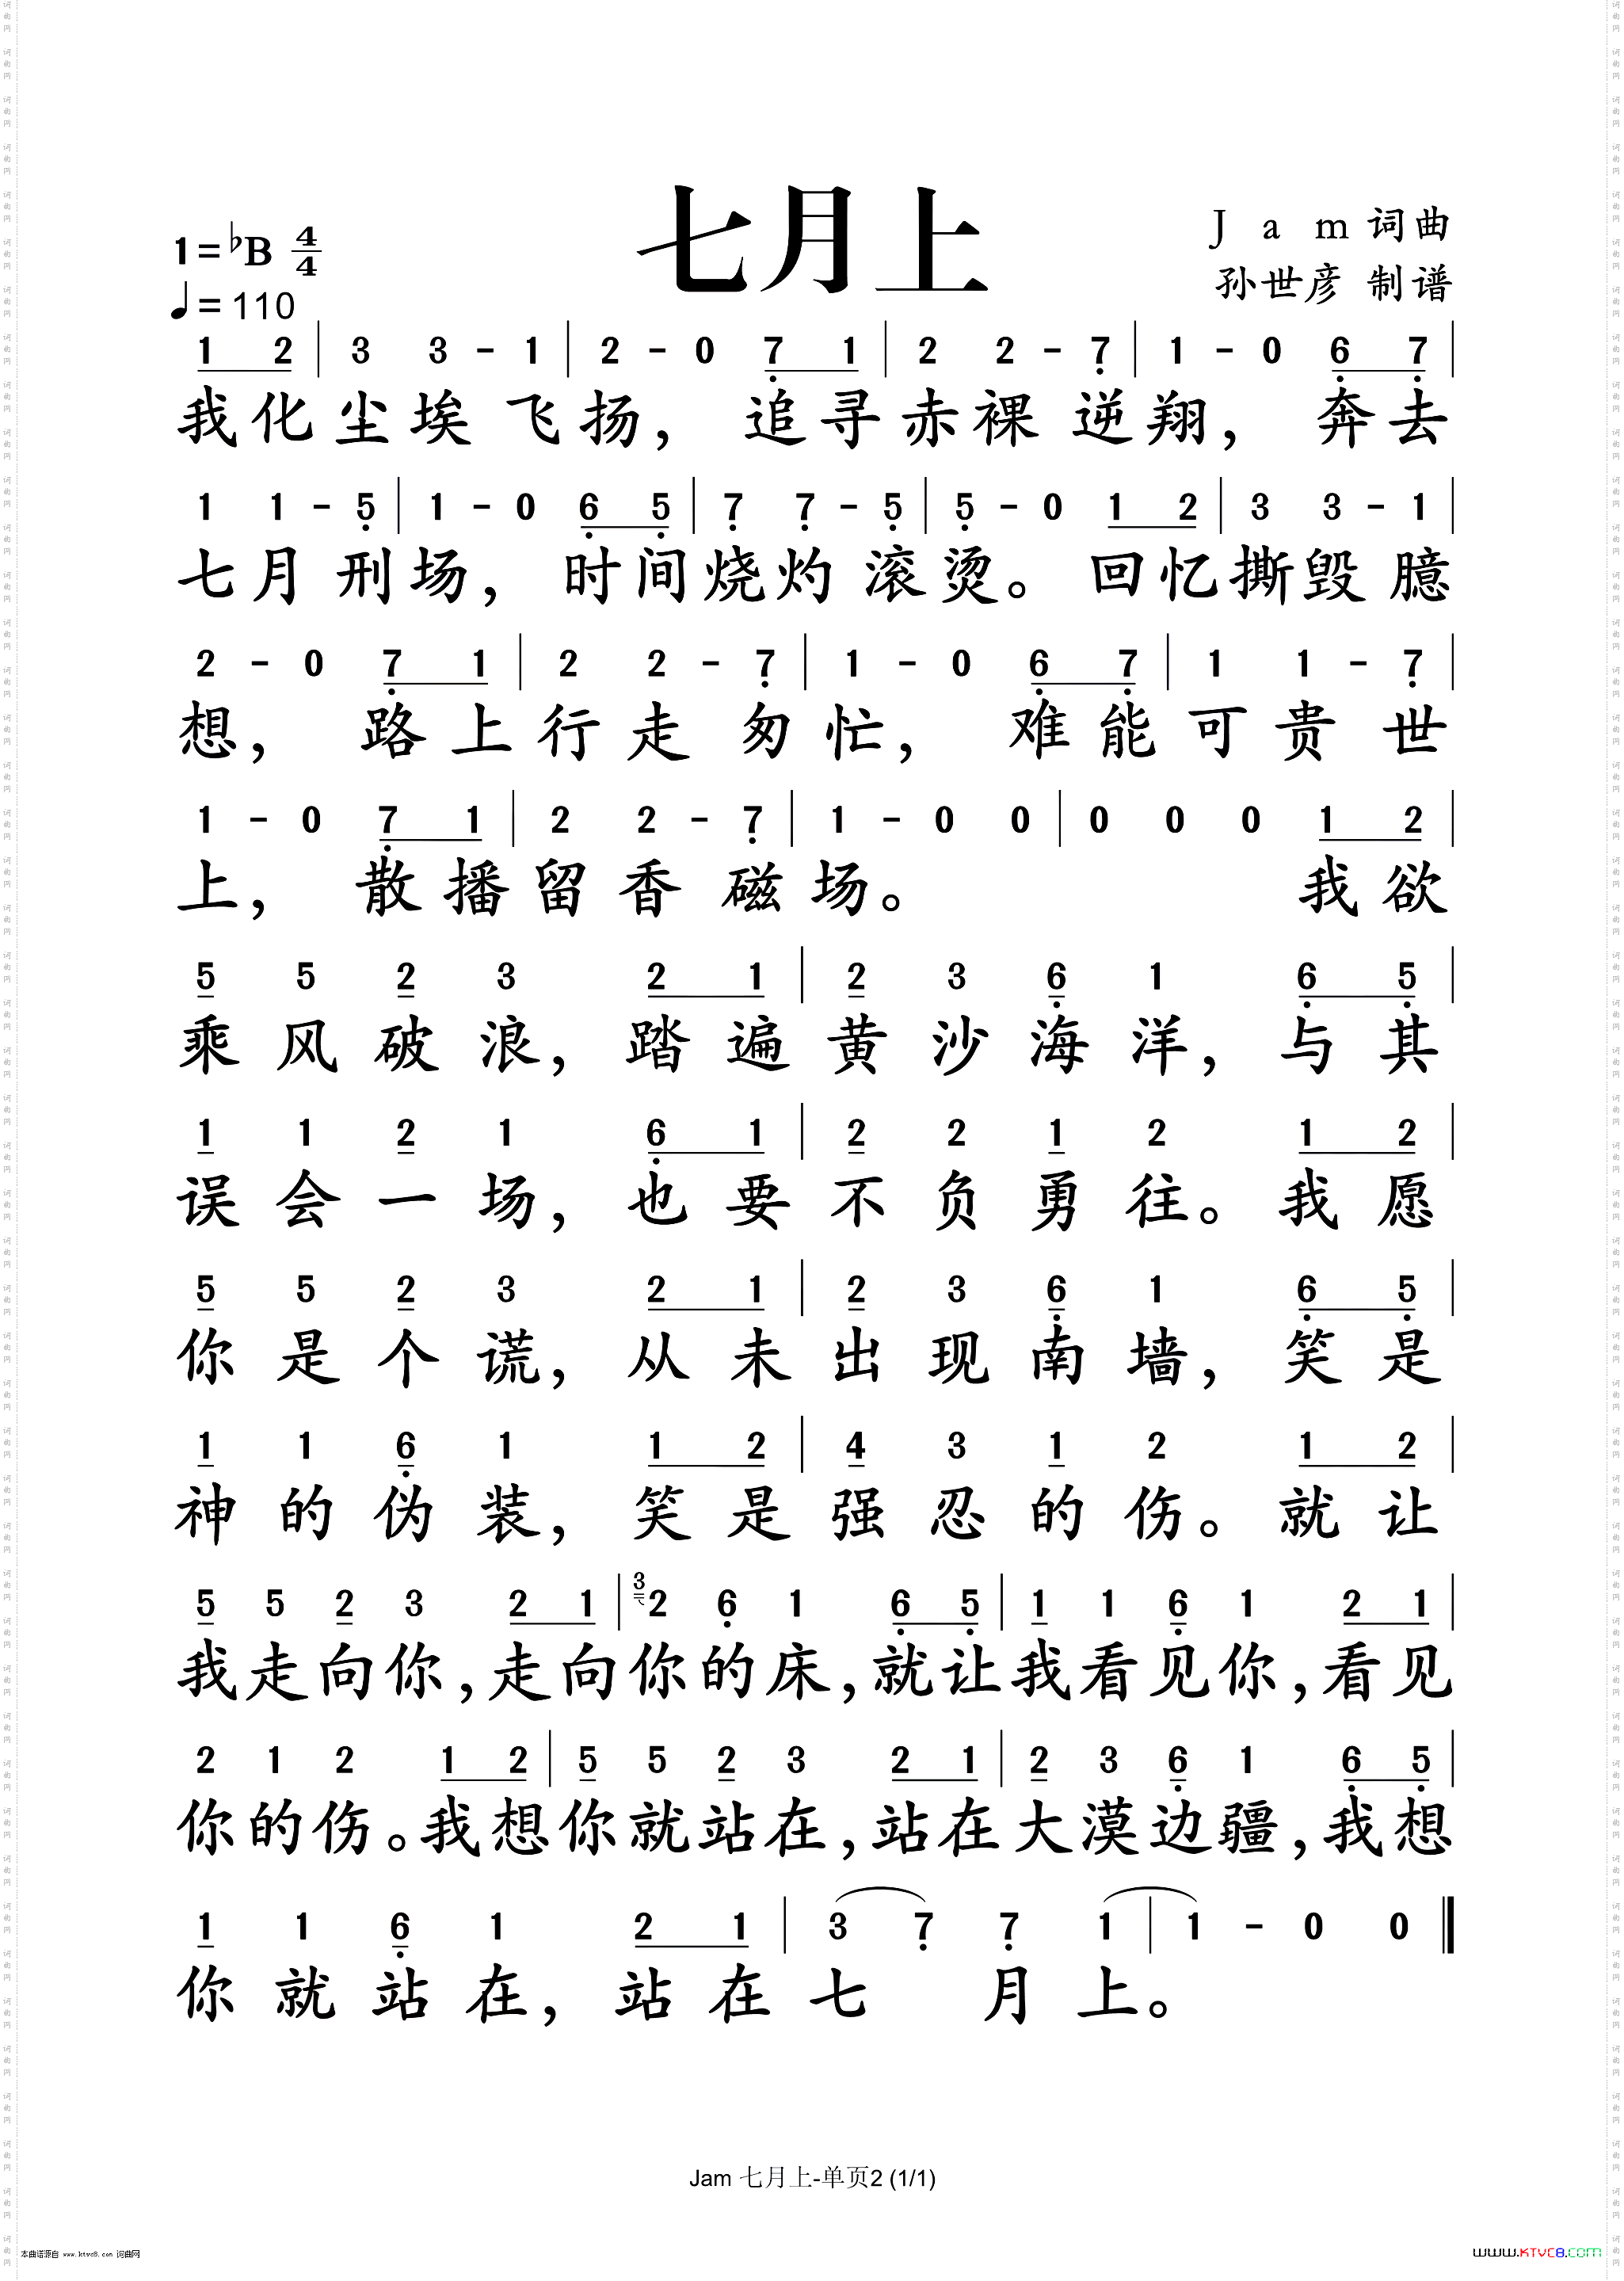 七月上
J a m 词曲
孙世彦 制谱
1=♭B 4/4
♩=110
1 2 | 3 3 - 1 | 2 - 0 7̣ 1 | 2 2 - 7̣ | 1 - 0 6̣ 7̣ |
我化尘埃飞扬，追寻赤裸逆翔，奔去
1 1 - 5̣ | 1 - 0 6̣ 5̣ | 7̣ 7̣ - 5̣ | 5̣ - 0 1 2 | 3 3 - 1 |
七月刑场，时间烧灼滚烫。回忆撕毁臆
2 - 0 7̣ 1 | 2 2 - 7̣ | 1 - 0 6̣ 7̣ | 1 1 - 7̣ |
想，路上行走匆忙，难能可贵世
1 - 0 7̣ 1 | 2 2 - 7̣ | 1 - 0 0 | 0 0 0 1 2 |
上，散播留香磁场。我欲
5 5 2 3 2 1 | 2 3 6̣ 1 6̣ 5̣ |
乘风破浪，踏遍黄沙海洋，与其
1 1 2 1 6̣ 1 | 2 2 1 2 1 2 |
误会一场，也要不负勇往。我愿
5 5 2 3 2 1 | 2 3 6̣ 1 6̣ 5̣ |
你是个谎，从未出现南墙，笑是
1 1 6̣ 1 1 2 | 4 3 1 2 1 2 |
神的伪装，笑是强忍的伤。就让
5 5 2 3 2 1 | 3 2 6̣ 1 6̣ 5̣ | 1 1 6̣ 1 2 1 |
我走向你，走向你的床，就让我看见你，看见
2 1 2 1 2 | 5 5 2 3 2 1 | 2 3 6̣ 1 6̣ 5̣ |
你的伤。我想你就站在，站在大漠边疆，我想
1 1 6̣ 1 2 1 | 3 7̣ 7̣ 1 | 1 - 0 0 ‖
你就站在，站在七月上。
Jam 七月上-单页2 (1/1)
本曲谱源自 www.ktvc8.com 词曲网
www.KTVC8.COM